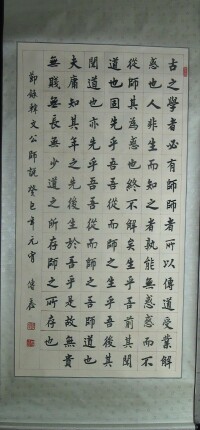 古之學者必有師師者所以傳道受業解
惑也人非生而知之者孰能無惑惑而不
從師其為惑也終不解矣生乎吾前其聞
道也固先乎吾吾從而師之生乎吾後其
聞道也亦先乎吾吾從而師之吾師道也
夫庸知其年之先後生於吾乎是故無貴
無賤無長無少道之所存師之所存也
節錄韓文公師說 癸巳年元宵